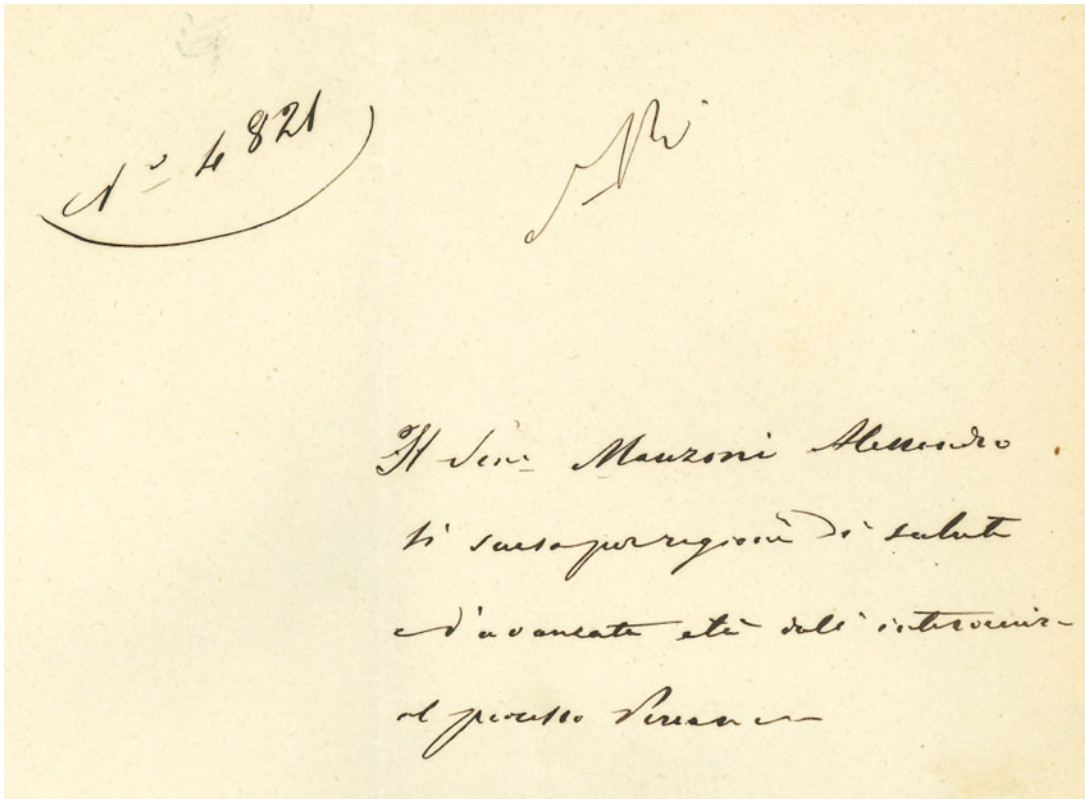 N.º 4821
Il Sen.e Manzoni Alessandro
si scusa per ragioni di salute
e d'avanzata età dall'intervenire
al processo Persano